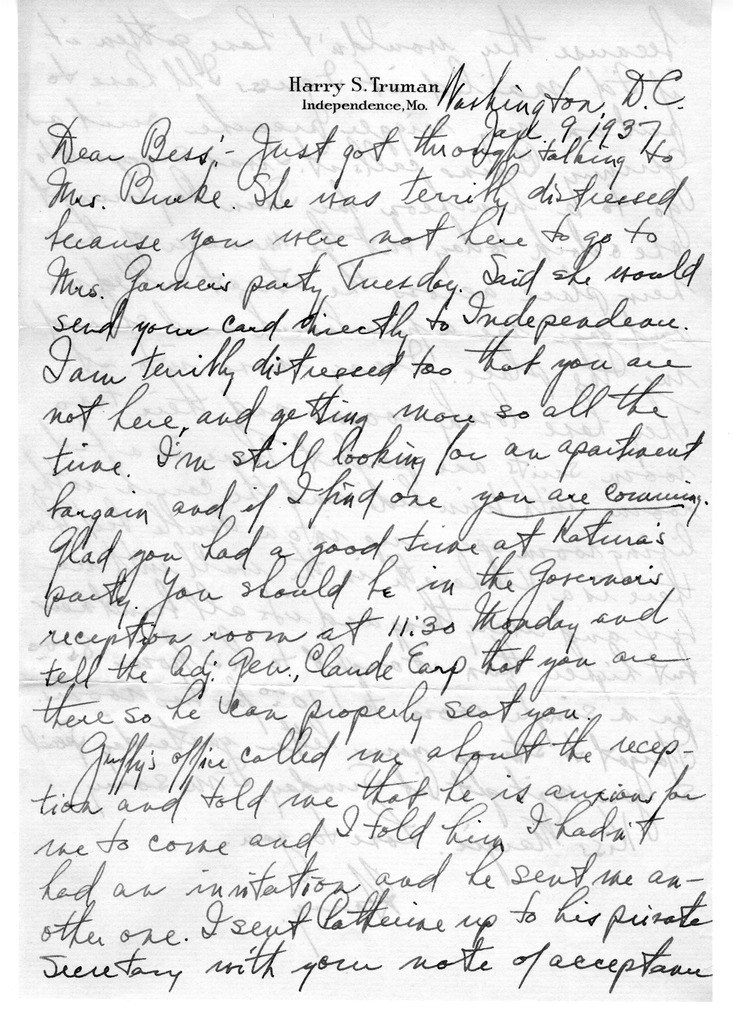 Harry S. Truman
Independence, Mo.
Washington, D.C.
Jan. 9, 1937
Dear Bess:- Just got through talking to
Mrs. Burke. She was terribly distressed
because you were not here to go to
Mrs. Garner's party Tuesday. Said she would
send your card directly to Independence.
I am terribly distressed too that you are
not here, and getting more so all the
time. I'm still looking for an apartment
bargain and if I find one you are comming.
Glad you had a good time at Natura's
party. You should be in the Governor's
reception room at 11:30 Monday and
tell the Adj. Gen., Claude Earp that you are
there so he can properly seat you.
Guffy's office called me about the recep-
tion and told me that he is anxious for
me to come and I told him I hadn't
had an invitation and he sent me an-
other one. I sent Catherine up to his private
Secretary with your note of acceptance